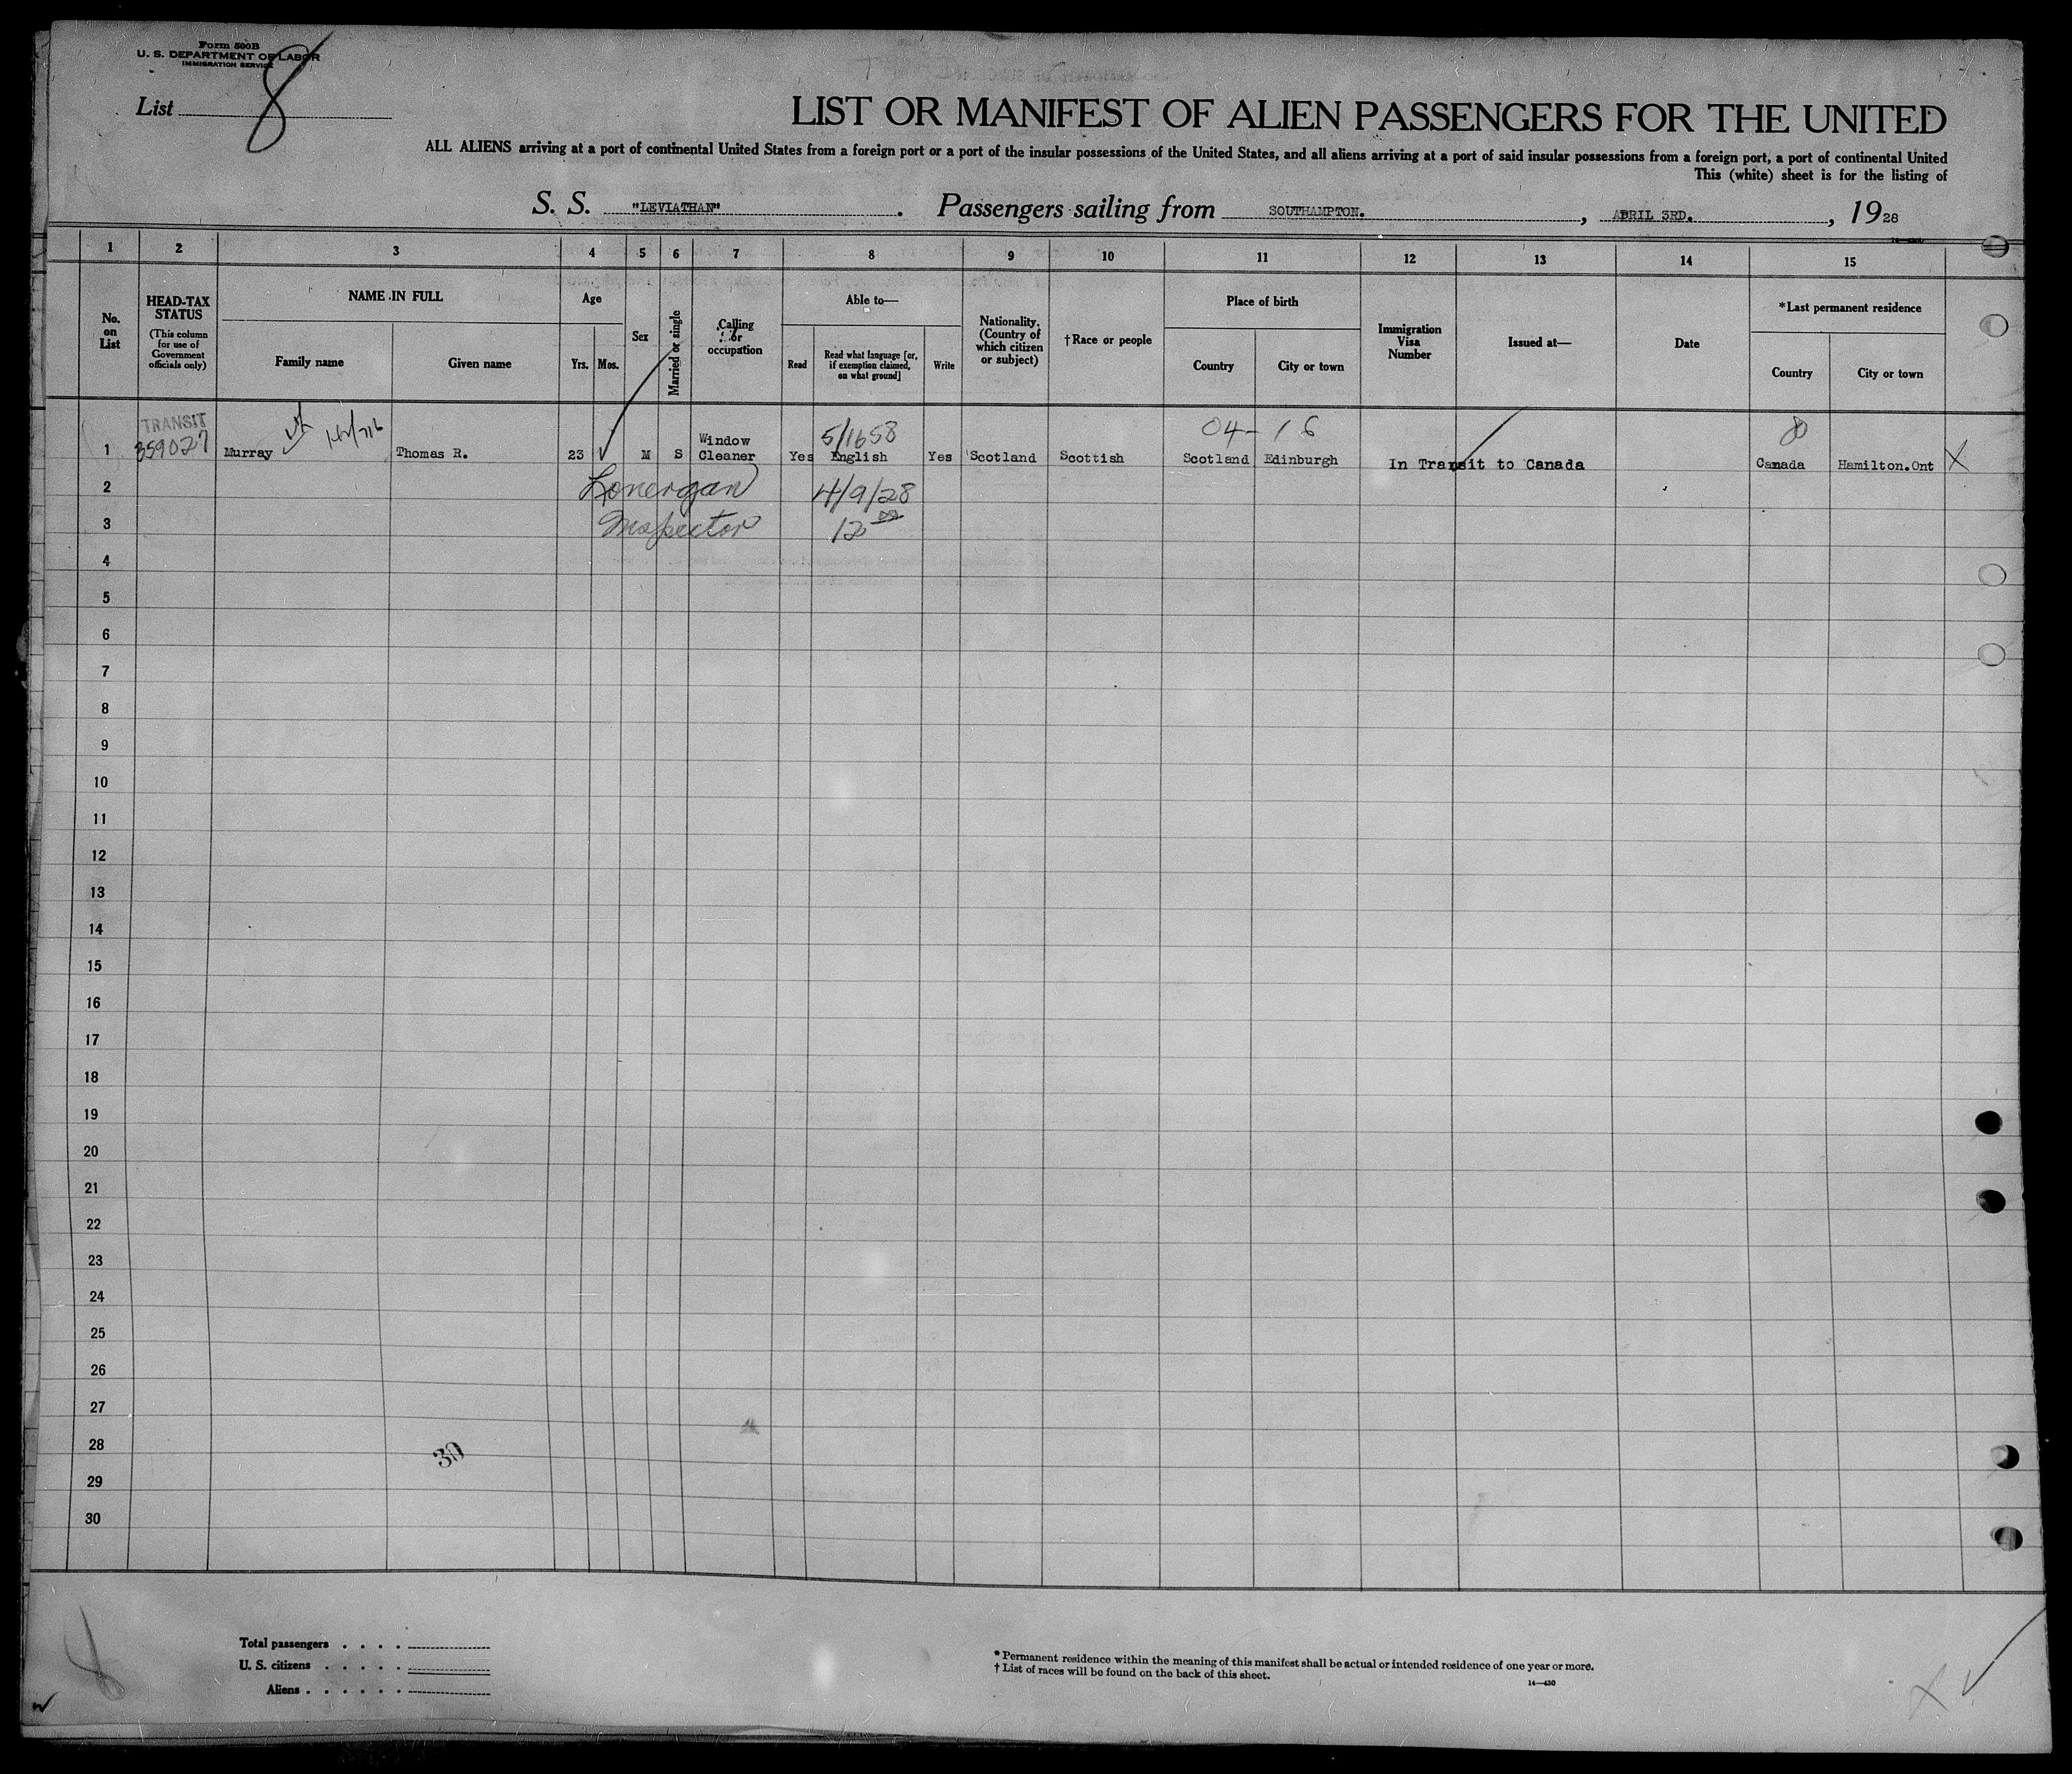 Form 500B
U. S. DEPARTMENT OF LABOR
IMMIGRATION SERVICE
List 8
LIST OR MANIFEST OF ALIEN PASSENGERS FOR THE UNITED
ALL ALIENS arriving at a port of continental United States from a foreign port or a port of the insular possessions of the United States, and all aliens arriving at a port of said insular possessions from a foreign port, a port of continental United
This (white) sheet is for the listing of
S. S. "LEVIATHAN". Passengers sailing from SOUTHAMPTON. , APRIL 3RD. , 1928
1 2 3 4 5 6 7 8 9 10 11 12 13 14 15
No. on List
HEAD-TAX STATUS
(This column for use of Government officials only)
NAME IN FULL
Family name
Given name
Age
Yrs.
Mos.
Sex
Married or single
Calling or occupation
Able to—
Read
Read what language [or, if exemption claimed, on what ground]
Write
Nationality. (Country of which citizen or subject)
†Race or people
Place of birth
Country
City or town
Immigration Visa Number
Issued at—
Date
*Last permanent residence
Country
City or town
TRANSIT
359027
5/1658
04-16
8
1 Murray Thomas R. 23 M S Window Cleaner Yes English Yes Scotland Scottish Scotland Edinburgh In Transit to Canada Canada Hamilton.Ont X
2 Lonergan 4/9/28
3 Inspector 12
4
5
6
7
8
9
10
11
12
13
14
15
16
17
18
19
20
21
22
23
24
25
26
27
28
30
29
30
8
Total passengers . . . .
U. S. citizens . . . . .
Aliens . . . . . .
* Permanent residence within the meaning of this manifest shall be actual or intended residence of one year or more.
† List of races will be found on the back of this sheet.
14—430
X